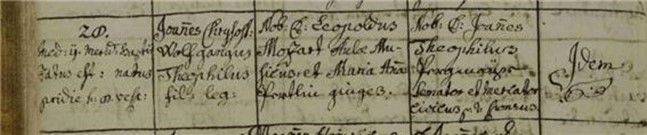 28.
med: 11 merid: baptiz
zatus est : natus
pridie h: 8 vesp:
Joañes Chrysost:
Wolfgangus
Theophilus
fil: leg:
Nob: D: Leopoldus
Mozart Aulæ Mu-
sicus, et Maria Aña
Pertlin giuges.
Nob: D: Joañes
Theophilus
Pergmayr
Senator et Mercator
civicus p: t: sponsus
Idem